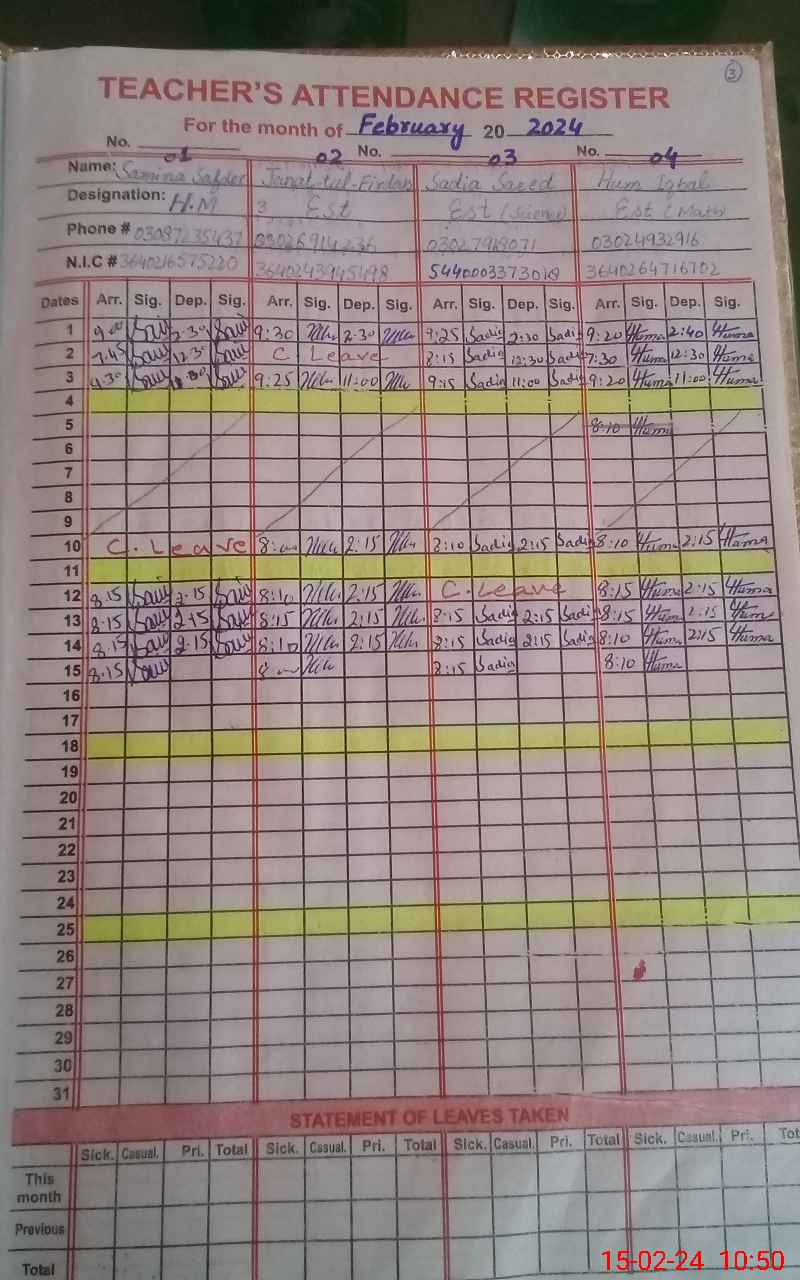 3
TEACHER'S ATTENDANCE REGISTER
For the month of February 20 2024
No. 01 02 No. 03 No. 04
Name: Samina Safder Janat-tul-Firdous Sadia Saeed Hum Iqbal
Designation: H.M Est Est (Science) Est (Math)
Phone # 03087235437 03026914236 03027918071 03024932916
N.I.C # 3640216575220 3640243945498 5440003373018 3640264716702
Dates Arr. Sig. Dep. Sig. Arr. Sig. Dep. Sig. Arr. Sig. Dep. Sig. Arr. Sig. Dep. Sig.
1 9:00 2:30 9:30 2:30 9:25 Sadia 2:30 Sadia 9:20 Huma 2:40 Huma
2 7:45 12:30 C Leave 8:15 Sadia 12:30 Sadia 7:30 Huma 12:30 Huma
3 9:30 9:25 11:00 9:15 Sadia 11:00 Sadia 9:20 Huma 11:00 Huma
4
5 8:10 Huma
6
7
8
9
10 C. Leave 8:00 2:15 8:10 Sadia 2:15 Sadia 8:10 Huma 2:15 Huma
11
12 8:15 2:15 8:10 2:15 C. Leave 8:15 Huma 2:15 Huma
13 8:15 2:15 8:15 2:15 8:15 Sadia 2:15 Sadia 8:15 Huma 2:15 Hum
14 8:15 2:15 8:10 2:15 8:15 Sadia 2:15 Sadia 8:10 Huma 2:15 Huma
15 8:15 8:00 8:15 Sadia 8:10 Huma
16
17
18
19
20
21
22
23
24
25
26
27
28
29
30
31
STATEMENT OF LEAVES TAKEN
Sick. Casual. Pri. Total Sick. Casual. Pri. Total Sick. Casual. Pri. Total Sick. Casual. Pri. Tot
This month
Previous
Total
15-02-24 10:50